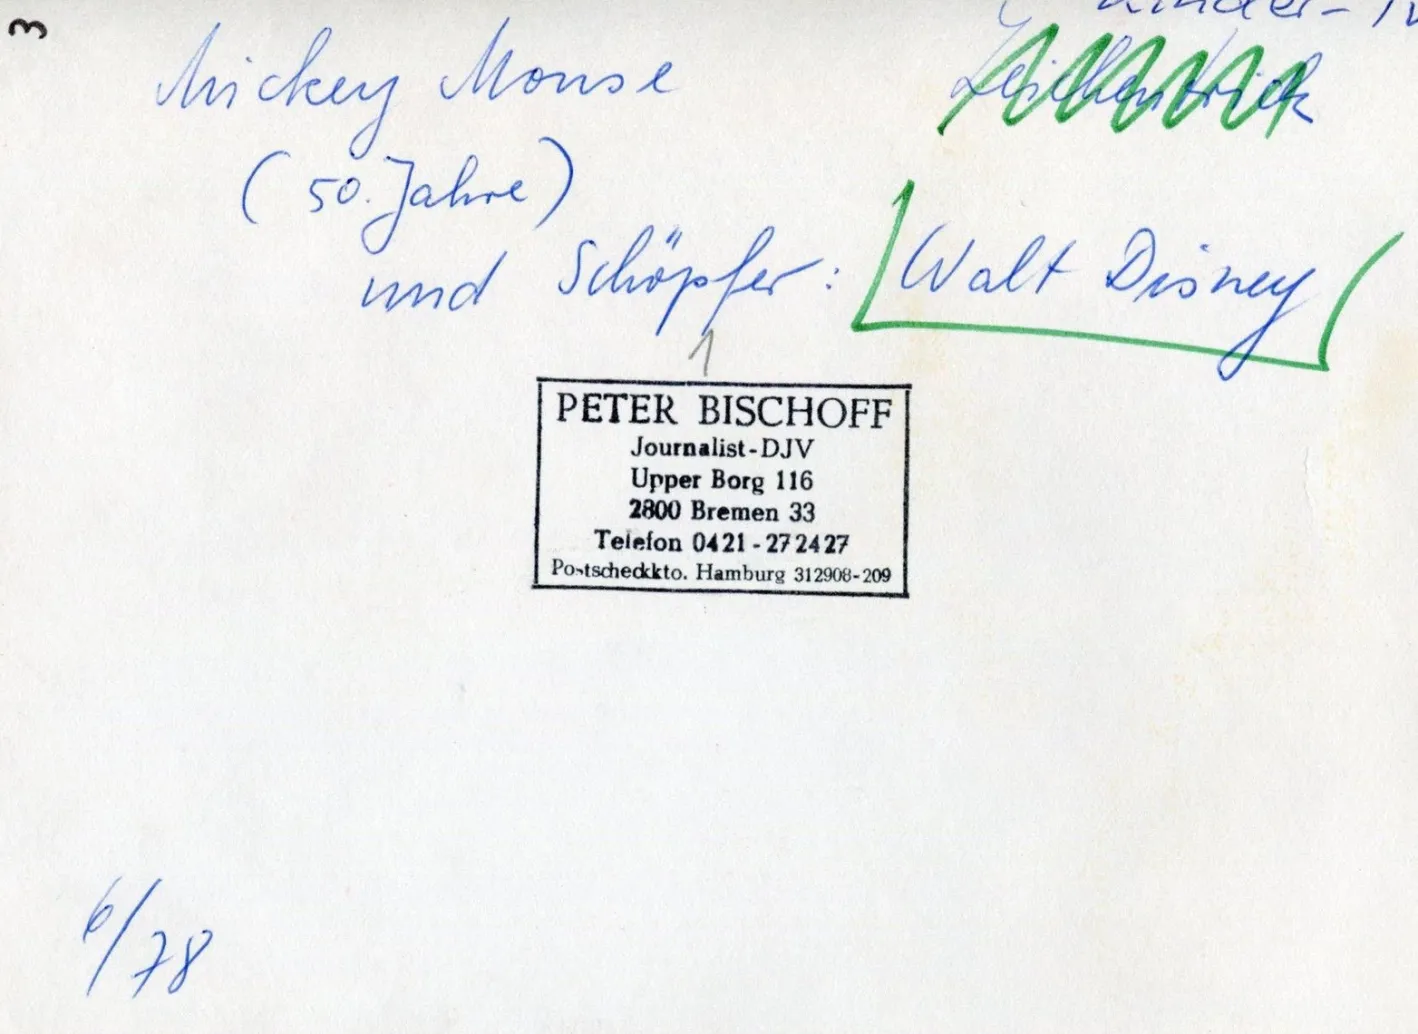 3
Kinder-
Zeichentrick
Mickey Mouse
(50. Jahre)
und Schöpfer: Walt Disney
1
PETER BISCHOFF
Journalist-DJV
Upper Borg 116
2800 Bremen 33
Telefon 0421-272427
Postscheckkto. Hamburg 312908-209
6/78